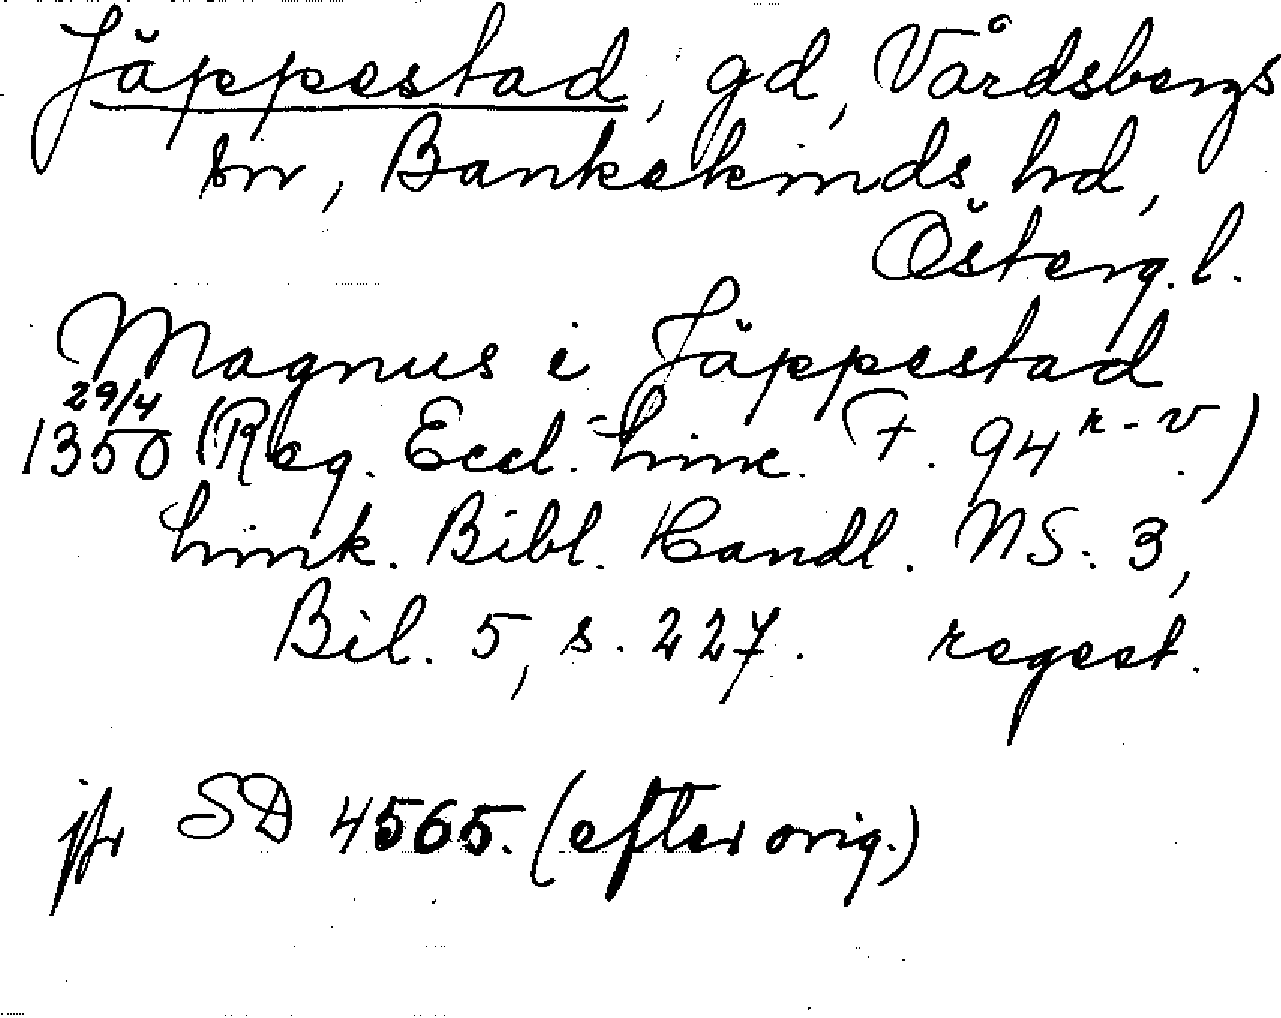 Jäppestad, gd, Vårdsbergs
sn, Bankekinds hd,
Österg.l.
Magnus i Jäppestad
29/4
1350 (Reg. Eccl. Linc. F. 94 r-v.)
Link. Bibl. Handl. NS. 3,
Bil. 5, s. 227. regest.
jfr SD 4565. (efter orig.)